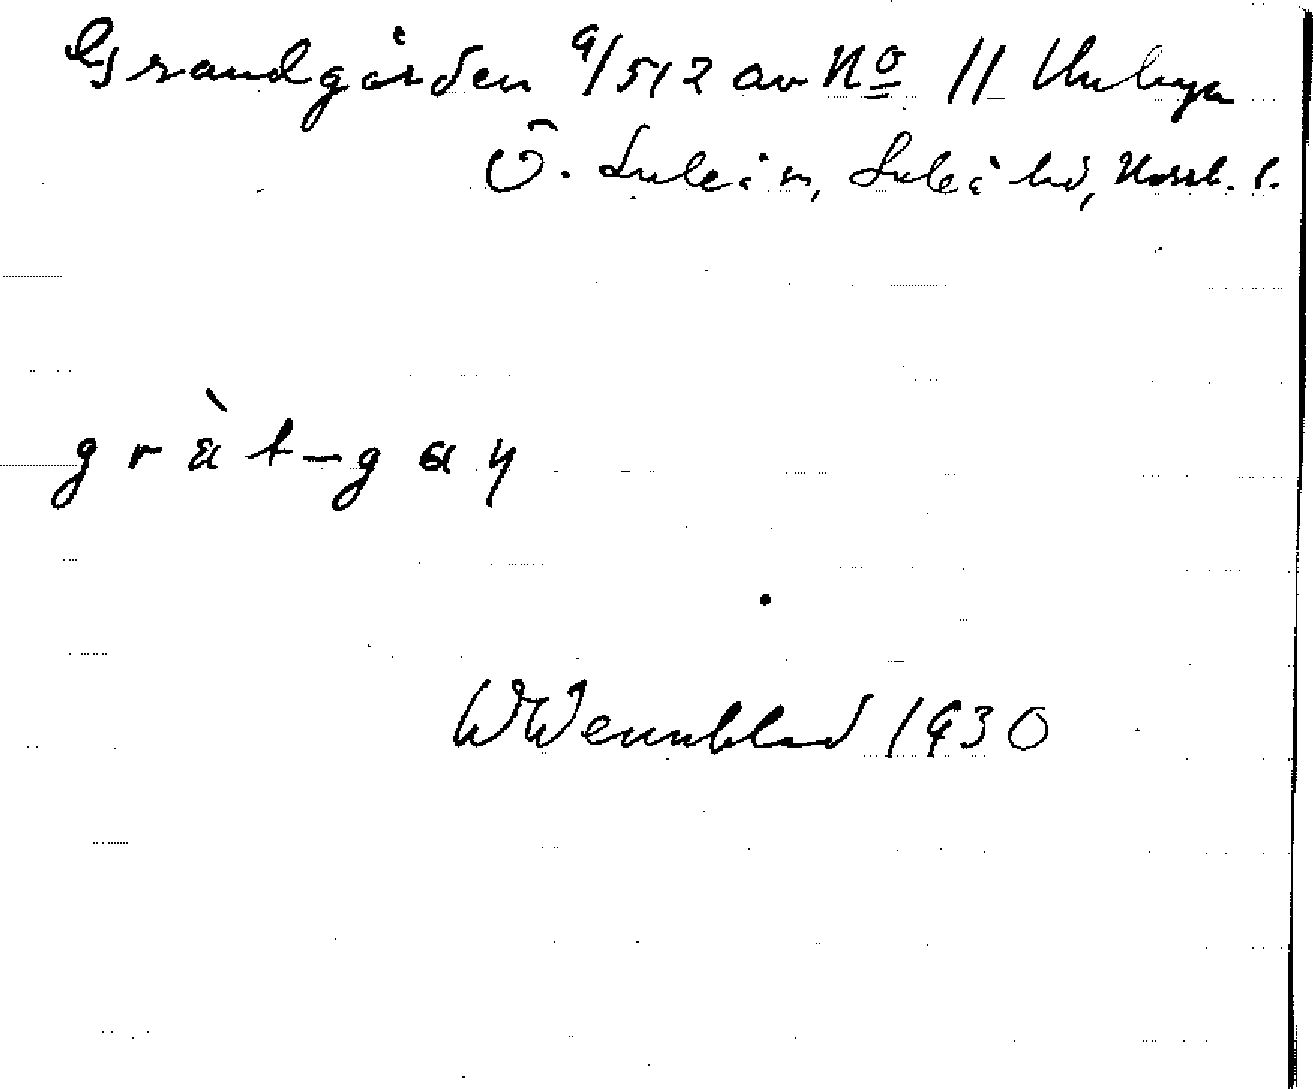 Grandgården 9/512 av No 11 Unbyn
Ö. Luleå sn, Luleå hd, Norrb. l.
gràt-gay
WWennblad 1930